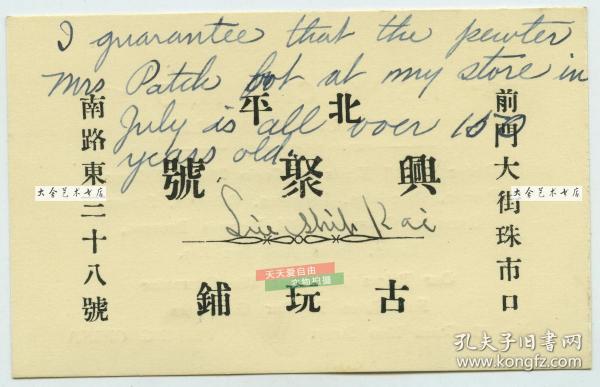 I guarantee that the pewter
Mrs Patch bot at my store in
July is all over 150
years old.
北平
興聚號
Liu Shih Kai
古玩鋪
前門大街珠市口
南路東二十八號
大合艺术书店
大合艺术书店
天天爱自由
实物拍摄
孔夫子旧书网
www.kongfz.com